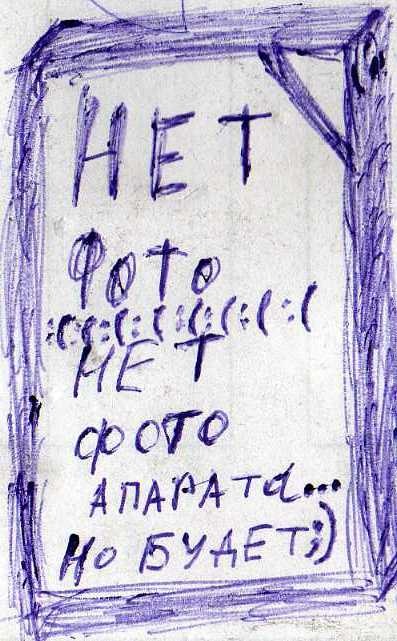 НЕТ
ФОТО
:(:(:(:(:(:(:(:(
НЕТ
ФОТО
АПАРАТа...
НО БУДЕТ;)